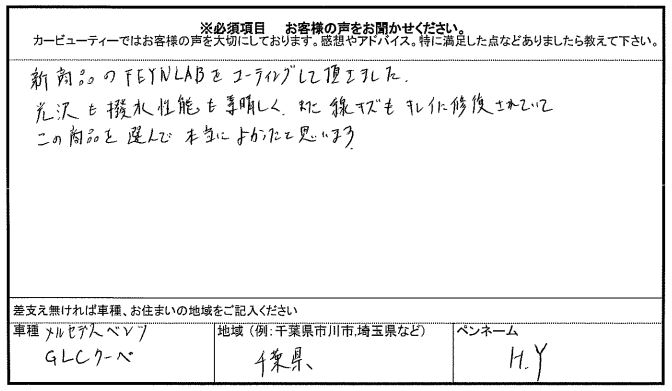 ※必須項目　お客様の声をお聞かせください。
カービューティーではお客様の声を大切にしております。感想やアドバイス。特に満足した点などありましたら教えて下さい。
新商品のFEYNLABをコーティングして頂きました。
光沢も撥水性能も素晴しく、また線キズもキレイに修復されていて
この商品を選んで本当によかったと思います
差支え無ければ車種、お住まいの地域をご記入ください
車種 メルセデスベンツ
GLCクーペ
地域（例：千葉県市川市,埼玉県など）
千葉県、
ペンネーム
H.Y